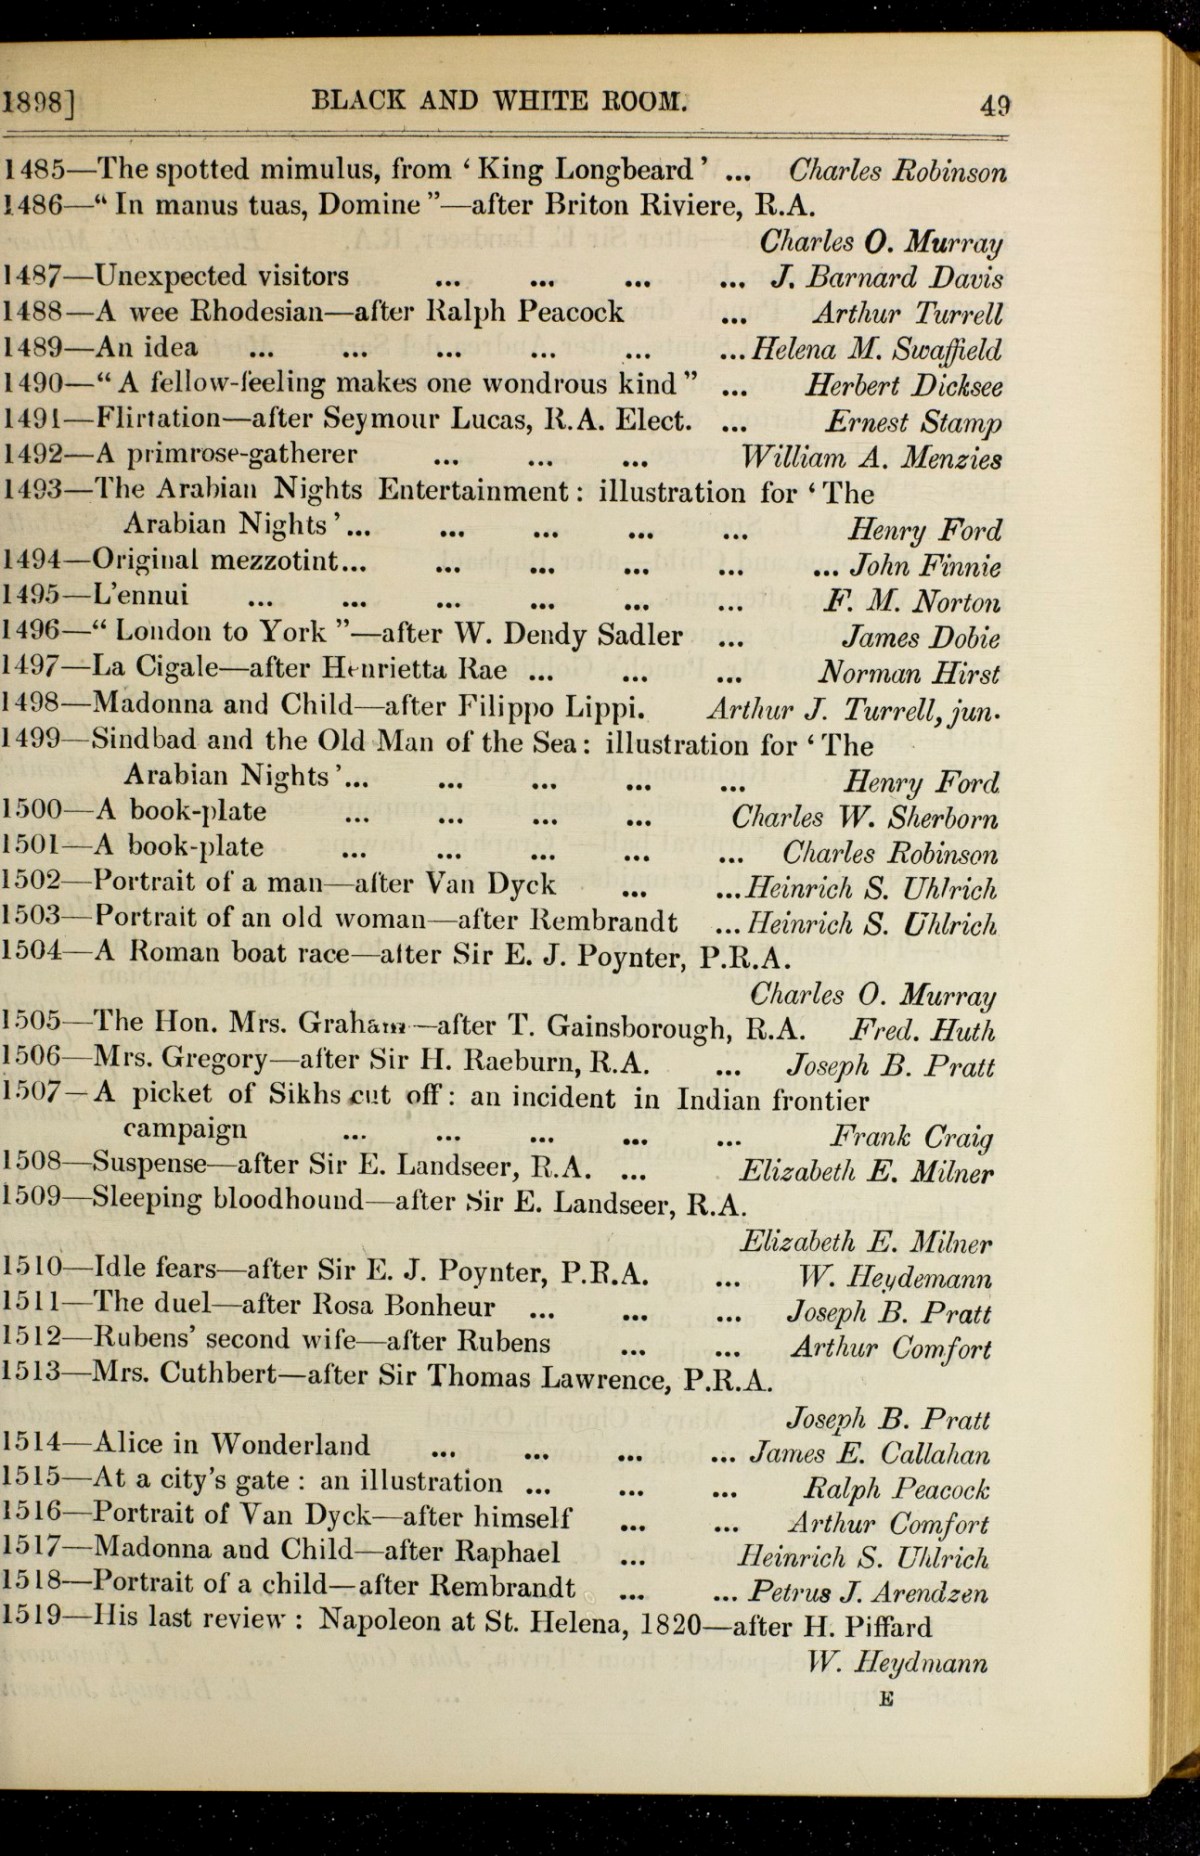 1898] BLACK AND WHITE ROOM. 49
1485—The spotted mimulus, from ‘King Longbeard’ ... Charles Robinson
1486—“In manus tuas, Domine”—after Briton Riviere, R.A.
Charles O. Murray
1487—Unexpected visitors ... ... ... ... J. Barnard Davis
1488—A wee Rhodesian—after Ralph Peacock ... Arthur Turrell
1489—An idea ... ... ... ... ... ... Helena M. Swaffield
1490—“A fellow-feeling makes one wondrous kind” ... Herbert Dicksee
1491—Flirtation—after Seymour Lucas, R.A. Elect. ... Ernest Stamp
1492—A primrose-gatherer ... ... ... William A. Menzies
1493—The Arabian Nights Entertainment: illustration for ‘The
Arabian Nights’... ... ... ... ... Henry Ford
1494—Original mezzotint... ... ... ... ... ... John Finnie
1495—L’ennui ... ... ... ... ... ... F. M. Norton
1496—“London to York”—after W. Dendy Sadler ... James Dobie
1497—La Cigale—after Henrietta Rae ... ... ... Norman Hirst
1498—Madonna and Child—after Filippo Lippi. Arthur J. Turrell, jun.
1499—Sindbad and the Old Man of the Sea: illustration for ‘The
Arabian Nights’... ... ... ... ... Henry Ford
1500—A book-plate ... ... ... ... Charles W. Sherborn
1501—A book-plate ... ... ... ... ... Charles Robinson
1502—Portrait of a man—after Van Dyck ... ... Heinrich S. Uhlrich
1503—Portrait of an old woman—after Rembrandt ... Heinrich S. Uhlrich
1504—A Roman boat race—after Sir E. J. Poynter, P.R.A.
Charles O. Murray
1505—The Hon. Mrs. Graham—after T. Gainsborough, R.A. Fred. Huth
1506—Mrs. Gregory—after Sir H. Raeburn, R.A. ... Joseph B. Pratt
1507—A picket of Sikhs cut off: an incident in Indian frontier
campaign ... ... ... ... ... Frank Craig
1508—Suspense—after Sir E. Landseer, R.A. ... Elizabeth E. Milner
1509—Sleeping bloodhound—after Sir E. Landseer, R.A.
Elizabeth E. Milner
1510—Idle fears—after Sir E. J. Poynter, P.R.A. ... W. Heydemann
1511—The duel—after Rosa Bonheur ... ... ... Joseph B. Pratt
1512—Rubens’ second wife—after Rubens ... ... Arthur Comfort
1513—Mrs. Cuthbert—after Sir Thomas Lawrence, P.R.A.
Joseph B. Pratt
1514—Alice in Wonderland ... ... ... ... James E. Callahan
1515—At a city’s gate: an illustration ... ... ... Ralph Peacock
1516—Portrait of Van Dyck—after himself ... ... Arthur Comfort
1517—Madonna and Child—after Raphael ... Heinrich S. Uhlrich
1518—Portrait of a child—after Rembrandt ... ... Petrus J. Arendzen
1519—His last review: Napoleon at St. Helena, 1820—after H. Piffard
W. Heydmann
E